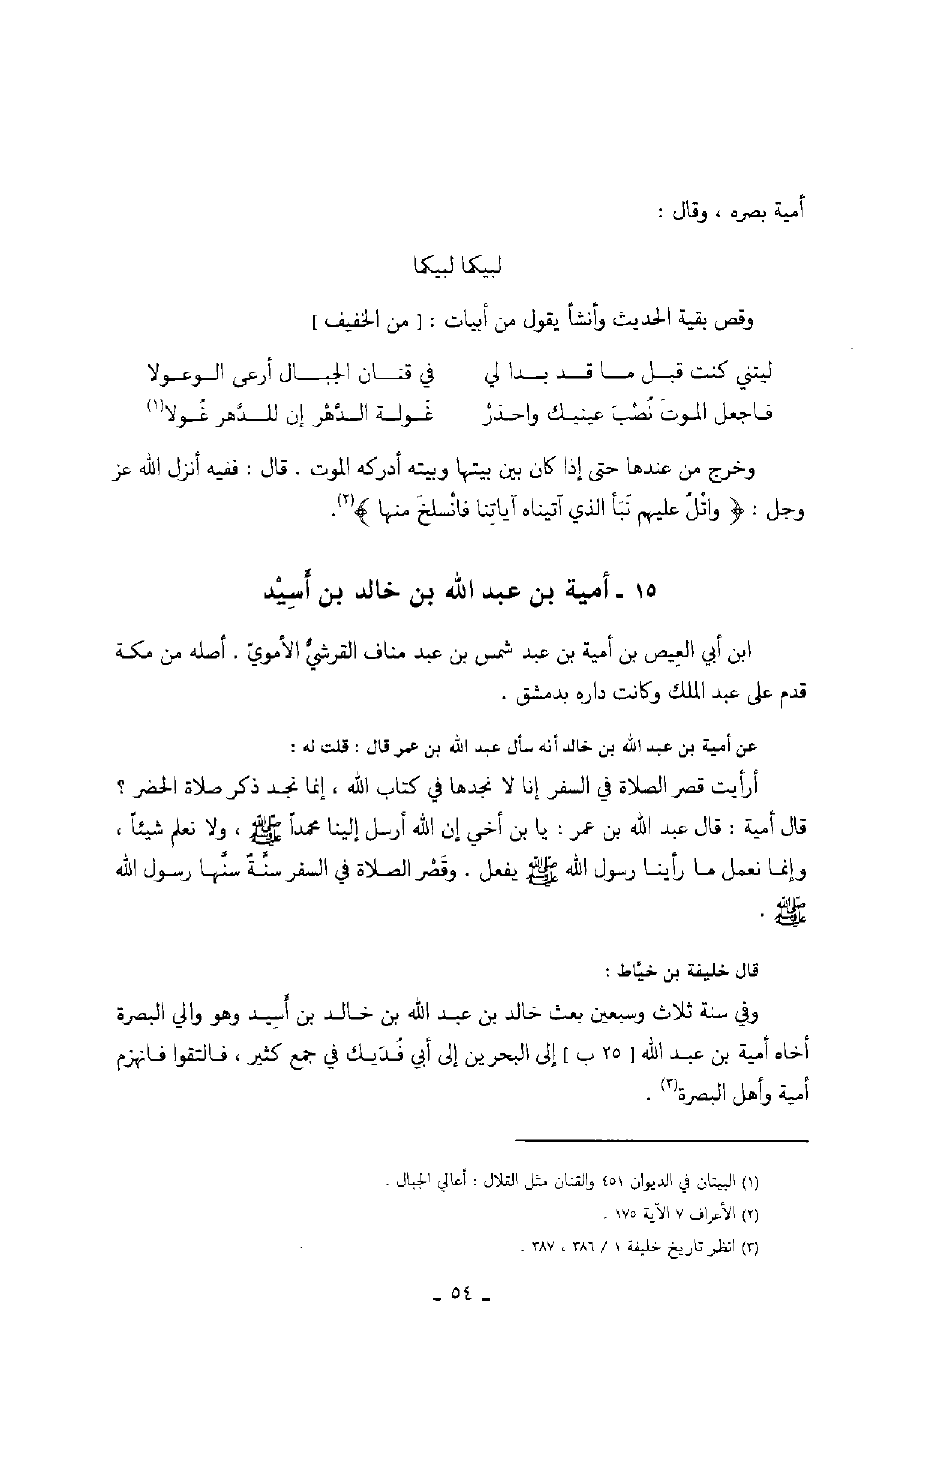 أمية بصره ، وقال :
لبيكما لبيكما
وقص بقية الحديث وأنشأ يقول من أبيات : [ من الخفيف ]
ليتني كنت قبل ما قد بدا لي في قنان الجبال أرعى الوعولا
فاجعل الموتَ نُصْبَ عينيك واحذرْ غَولة الدَّهْر إن للدَّهر غُولا(١)
وخرج من عندها حتى إذا كان بين بيتها وبيته أدركه الموت . قال : ففيه أنزل الله عز
وجل : ﴿ واتْلُ عليهم نَبَأَ الذي آتيناه آياتِنا فانْسلخَ منها ﴾(٢).
١٥ ـ أمية بن عبد الله بن خالد بن أَسِيْد
ابن أبي العِيص بن أمية بن عبد شمس بن عبد مناف القرشيُّ الأمويّ . أصله من مكة
قدم على عبد الملك وكانت داره بدمشق .
عن أمية بن عبد الله بن خالد أنه سأل عبد الله بن عمر قال : قلت له :
أرأيت قصر الصلاة في السفر إنا لا نجدها في كتاب الله ، إنما نجد ذكر صلاة الحضر ؟
قال أمية : قال عبد الله بن عمر : يا بن أخي إن الله أرسل إلينا محمداً ﷺ ، ولا نعلم شيئاً ،
وإنما نعمل ما رأينا رسول الله ﷺ يفعل . وقَصْر الصلاة في السفر سنَّةٌ سنَّها رسول الله
ﷺ .
قال خليفة بن خيَّاط :
وفي سنة ثلاث وسبعين بعث خالد بن عبد الله بن خالد بن أَسِيد وهو والي البصرة
أخاه أمية بن عبد الله [ ٢٥ ب ] إلى البحرين إلى أبي فُدَيك في جمع كثير ، فالتقوا فانهزم
أمية وأهل البصرة(٣) .
(١) البيتان في الديوان ٤٥١ والقنان مثل القلال : أعالي الجبال .
(٢) الأعراف ٧ الآية ١٧٥ .
(٣) انظر تاريخ خليفة ١ / ٣٨٦ ، ٣٨٧ .
ـ ٥٤ ـ